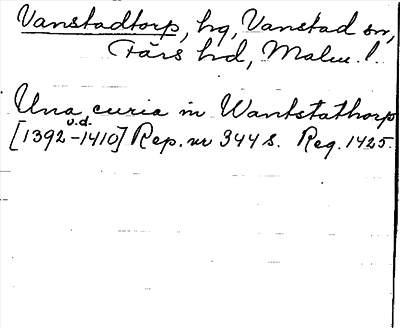 Vanstadtorp, hg, Vanstad sn,
Färs hd, Malm. l.
Una curia in Wantstathorp
[1392-1410] u.d. Rep. nr 344 s. Reg. 1425.